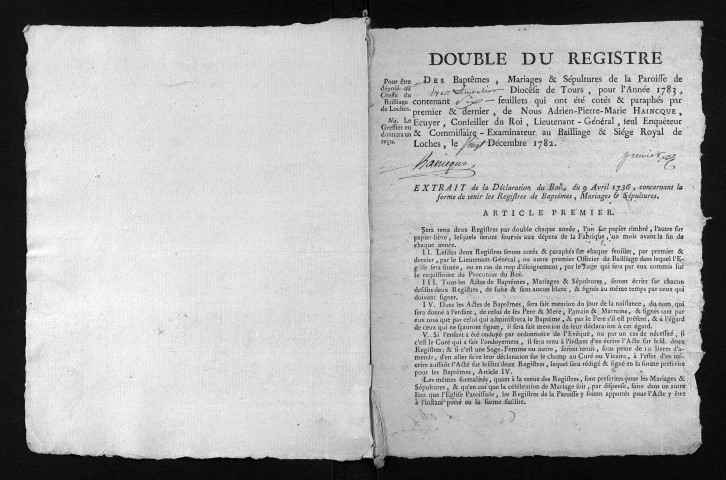 DOUBLE DU REGISTRE
Pour être
déposé au
Greffe du
Bailliage
de Loches.
Na. Le
Greffier en
donnera un
reçu.
DES Baptêmes, Mariages & Sépultures de la Paroisse de
Diocèse de Tours, pour l'Année 1783,
contenant six feuillets qui ont été cotés & paraphés par
premier & dernier, de Nous Adrien-Pierre-Marie HAINCQUE,
Ecuyer, Conseiller du Roi, Lieutenant-Général, seul Enquêteur
& Commissaire-Examinateur au Bailliage & Siége Royal de
Loches, le vingt Décembre 1782.
Haincque
premier
EXTRAIT de la Déclaration du Roi, du 9 Avril 1736, concernant la
forme de tenir les Registres de Baptêmes, Mariages & Sépultures.
ARTICLE PREMIER.
Sera tenu deux Registres par double chaque année, l'un sur papier timbré, l'autre sur
papier libre, lesquels seront fournis aux dépens de la Fabrique, un mois avant la fin de
chaque année.
II. Lesdits deux Registres seront cotés & paraphés sur chaque feuillet, par premier &
dernier, par le Lieutenant-Général, ou autre premier Officier du Bailliage dans lequel l'E-
glise sera située, ou en cas de trop d'éloignement, par le Juge qui sera par eux commis sur
le requisitoire du Procureur du Roi.
III. Tous les Actes de Baptêmes, Mariages & Sépultures, seront écrits sur chacun
desdits deux Registres, de suite & sans aucun blanc, & signés au même temps par ceux qui
doivent signer.
IV. Dans les Actes de Baptêmes, sera fait mention du jour de la naissance, du nom, qui
sera donné à l'enfant, de celui de ses Pere & Mere, Parrain & Marraine, & signés tant par
eux tous que par celui qui administrera le Baptême, & par le Pere s'il est présent, & à l'égard
de ceux qui ne sçauront signer, il sera fait mention de leur déclaration à cet égard.
V. Si l'enfant a été ondoyé par ordonnance de l'Evêque, ou par un cas de nécessité, si
c'est le Curé qui a fait l'ondoyement, il sera tenu à l'instant d'en écrire l'Acte sur lesd. deux
Registres; & si c'est une Sage-Femme ou autre, seront tenus, sous peine de 10 livres d'a-
mende, d'en aller faire leur déclaration sur le champ au Curé ou Vicaire, à l'effet d'en ins-
crire aussitôt l'Acte sur lesdits deux Registres, lequel sera rédigé & signé en la forme préscrite
pour les Baptêmes, Article IV.
Les mêmes formalités, quant à la tenue des Registres, sont prescrites pour les Mariages &
Sépultures, & qu'en cas que la célébration de Mariage soit, par dispense, faite dans un autre
lieu que l'Eglise Paroissiale, les Registres de la Paroisse y soient apportés pour l'Acte y être
à l'instant porté en la forme susdite.